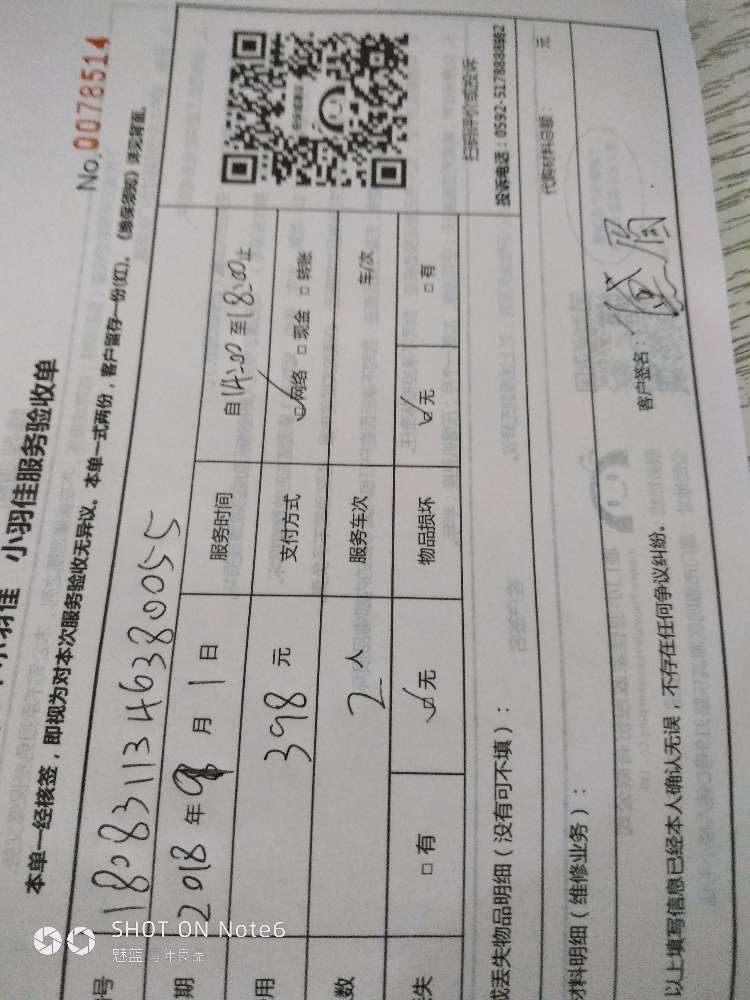 No.0078514
小羽佳 小羽佳服务验收单
本单一经核签，即视为对本次服务验收无异议。本单一式两份，客户留存一份(红)。《维保须知》详见背面。
号 1808311346380055
期 2018年 月1日 服务时间 自14:00至18:00止
用 398元 支付方式 ☑网络 □现金 □转账
数 2人 服务车次 车/次
失 □有 ☑无 物品损坏 ☑无 □有
扫码评价或投诉
投诉电话：0592-5178888转2
或丢失物品明细（没有可不填）：
材料明细（维修业务）： 代购材料总额： 元
以上填写信息已经本人确认无误，不存在任何争议纠纷。 客户签名：
SHOT ON Note6
魅蓝